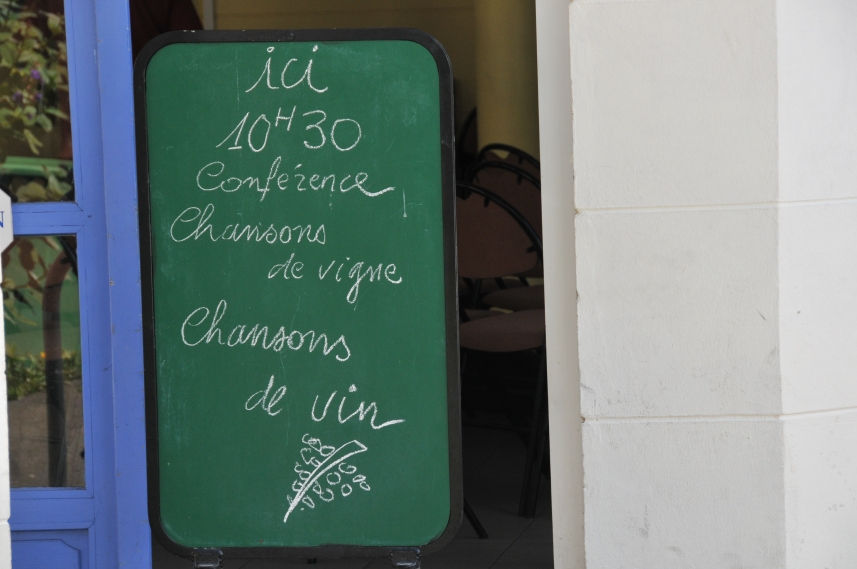 ici
10H30
Conférence
Chansons
de vigne
Chansons
de vin